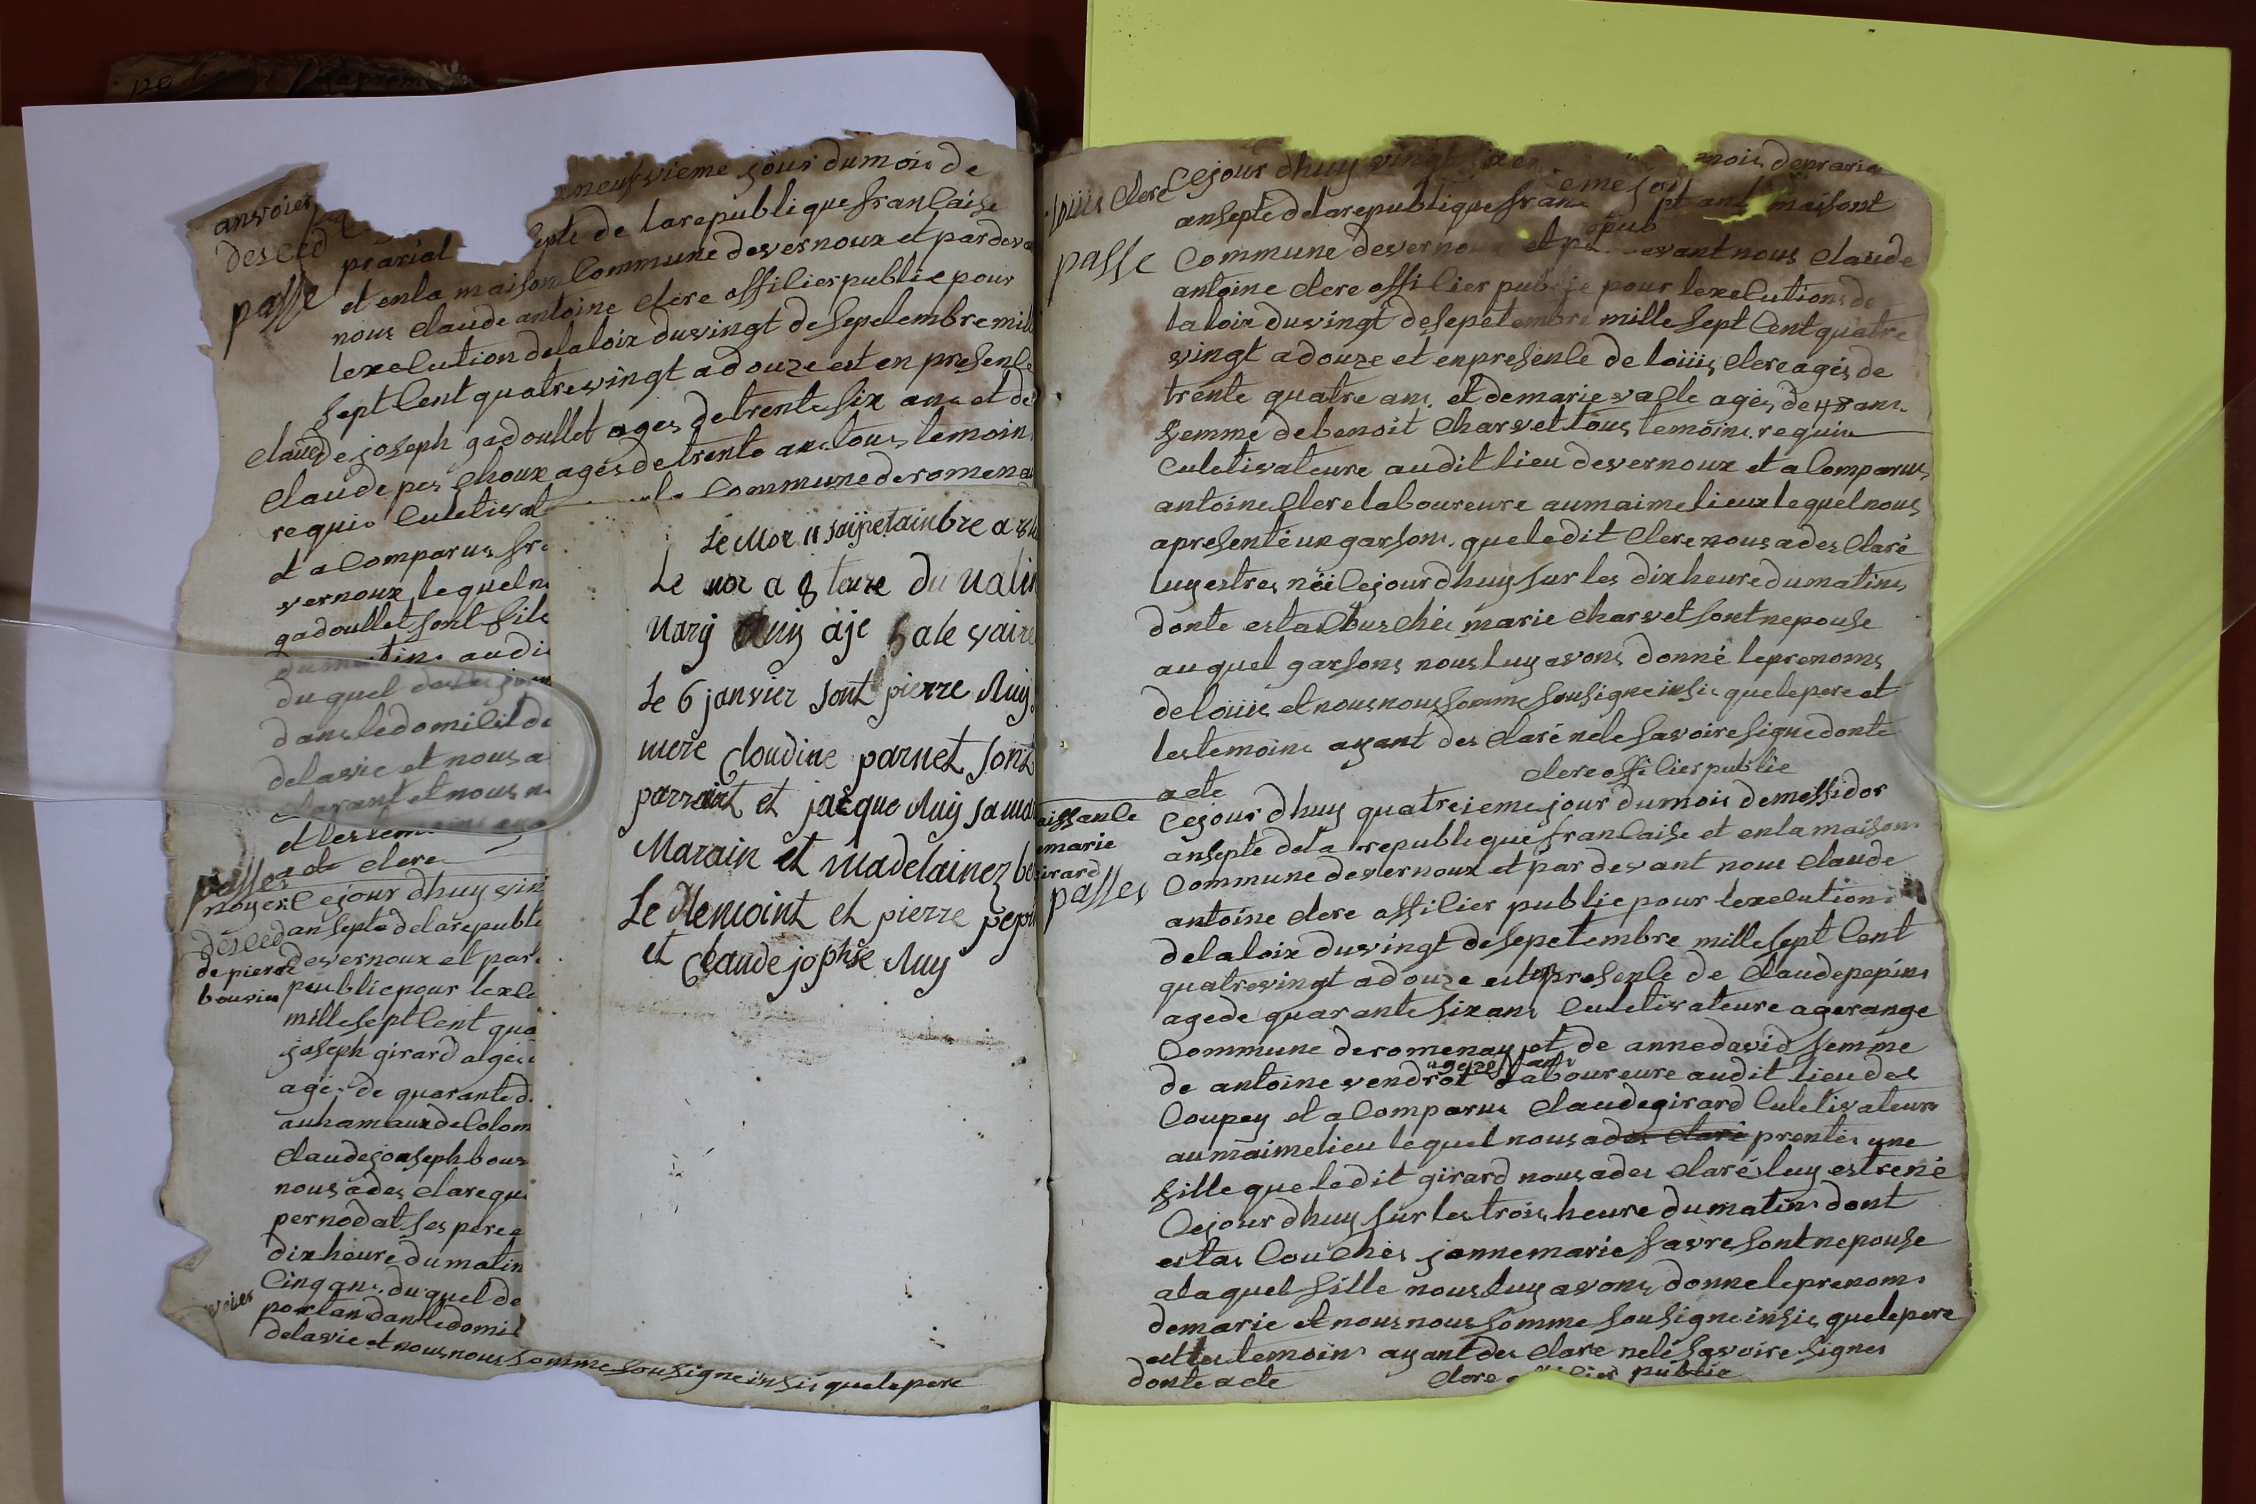 neufvieme jour du mois de
anvoier
prarial septe de la republique francaise
desced
et en la maison Commune devernoux et pardeva
passe
nous Claude antoine Clere offilier publie pour
lexelution delaloix du vingt de sepetembre mill
sept Cent quatrevingt adouze est en presenle
Claude joseph gadoullet ages de trente six ans et de
Claude pes Choux ages de trente ans tous temoins
requis Culetivat Commune deromena
et a Comparus fr
vernoux lequel n
gadoullet sont fils
du matins audi
du quel
dans le domilil de
delavie et nous a
Clarant et nous n
et les temoins
acte Clere
passes
noyer Ce jour dhuy vin
desced an septe delarepubli
de pierre devernoux et par
bouvier publie pour lexel
mille sept Cent qua
joseph girard ages
ages de quarante d
au hamaux de Colom
Claude jonseph bouv
nous a des Clare que
pernodat ses pere e
dix heure du matin
Cinq ans du quel de
portan dans le domil
delavie et nous nous somme sousigne insis que le pere
Le Mor 11 saipetainbre a 8 u
Le mor a 8 teure du Matin
Mary Muy aje
Le 6 janvier sont pierre Muy
mere Cloudine parnet sont
parraint et jacque Muy sa ma
Marain et madelainez bo
Le temoint et pierre pepin
et Claude jophse Muy
louis Clere
Cejour dhuy vingt mois de prarial
an septe delarepublique fran maisont
passe
Commune devernoux et par devant nous Claude
antoine Clere offilier publie pour lexelutions de
la loix du vingt de sepetembre mille sept Cent quatre
vingt adouze et en presenle de louis Clere ages de
trente quatre ans et de marie valle ages de 48 ans
femme de benoit Charvet tous temoins requis
Culetivateure audit lieu devernoux et a Comparus
antoine Clere laboureure au maime lieux lequel nous
apresenté un garsons que ledit Clere nous a des Claré
luy estres néé Cejour dhuy sur les dix heure du matins
donte esta Cous Chés marie Charvet sont nepouse
au quel garsons nous luy avons donné le prenoms
de louis et nous nous somme sousigne insis que le pere et
les temoins ayant des Claré nele savoire signe donte
acte Clere offilier publie
aissanle
emarie
irard
passes
Cejour dhuy quatreieme jour du mois de messidor
an septe dela republique francaise et en la maisons
Commune devernoux et par devant nous Claude
antoine Clere offilier publie pour lexelutions
delaloix du vingt de sepetembre mille sept Cent
quatrevingt adouze est en presenle de Claude pepins
age de quarante six ans Culetivateure agerange
Commune deromenay et de anne david femme
ages 28 ans
de antoine vendrot laboureure audit lieu des
Coupey et a Comparus Claude girard Culetivateure
au maime lieu lequel nous a des Claré prentés une
fille que ledit girard nous a des Clarés luy estre né
Cejour dhuy sur les trois heure du matins dont
estas Cou Ches janne marie favre sont nepouse
alaquel fille nous luy avons donne le prenoms
de marie et nous nous somme sousigne insis que le pere
et les temoins ayant des Clare nelé savoire signes
donte acte Clere offilier publie